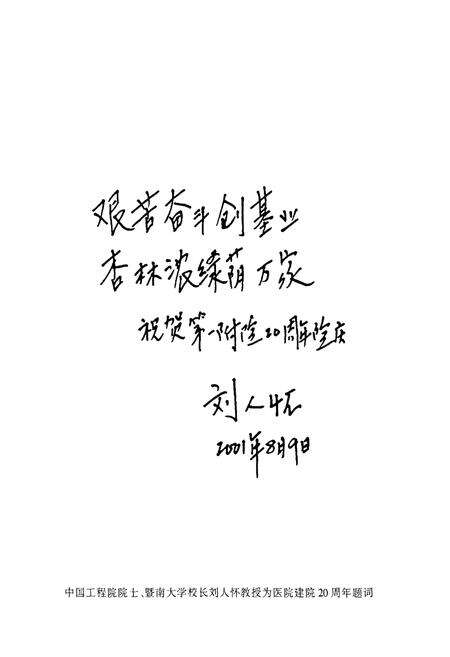 艰苦奋斗创基业
杏林浓绿荫万家
祝贺第一附院20周年院庆
刘人怀
2001年8月9日
中国工程院院士、暨南大学校长刘人怀教授为医院建院20周年题词